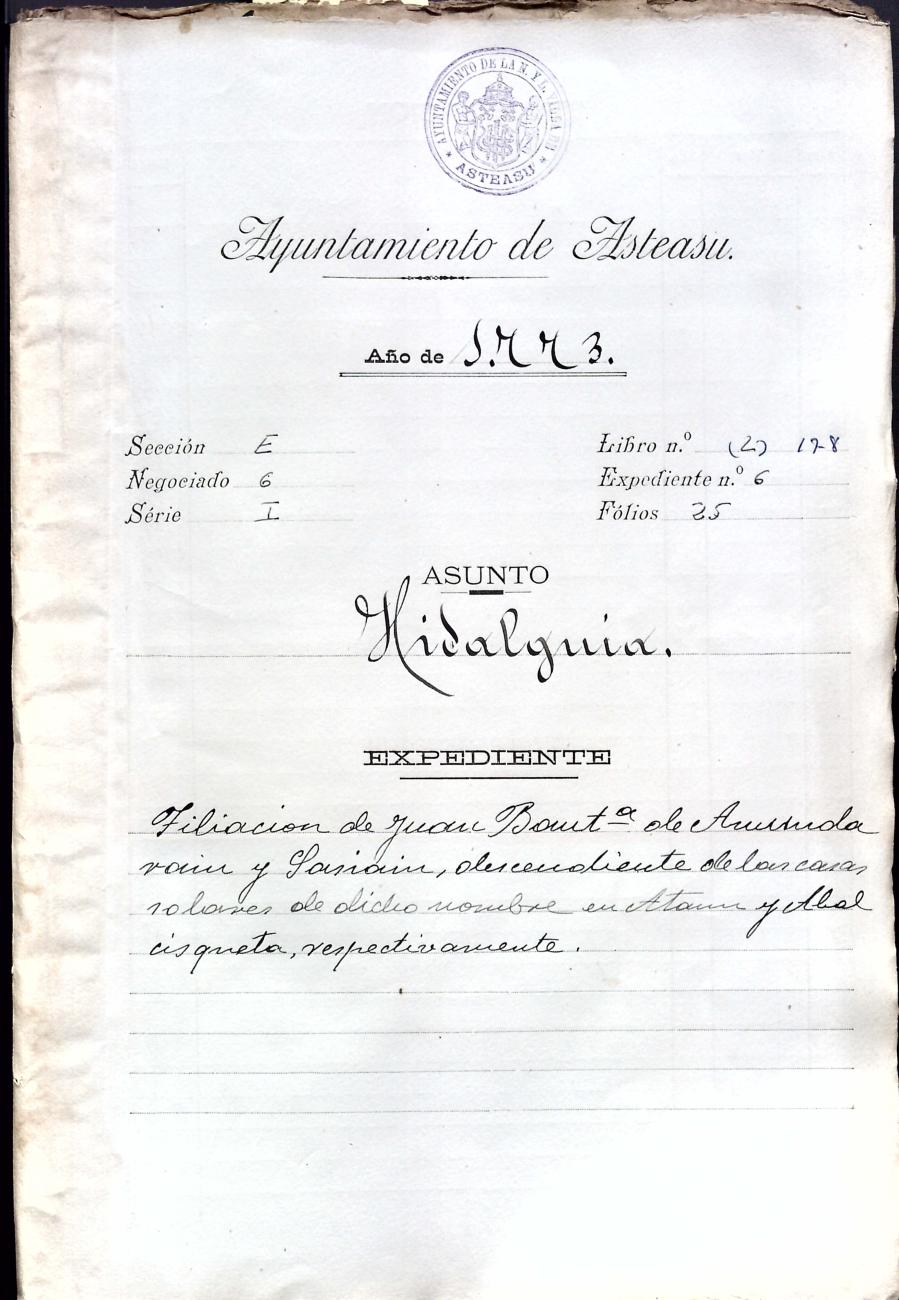 AYUNTAMIENTO DE LA N. Y L. VILLA DE
* ASTEASU *
Ayuntamiento de Asteasu.
Año de 1.773.
Sección E
Negociado 6
Série I
Libro n.º (2) 178
Expediente n.º 6
Fólios 35
ASUNTO
Hidalguia.
EXPEDIENTE
Filiacion de Juan Baut.ª de
rain y Sasiain, descendiente de las casas
solares de dicho nombre en Ataun y Abal
cisqueta, respectivamente.